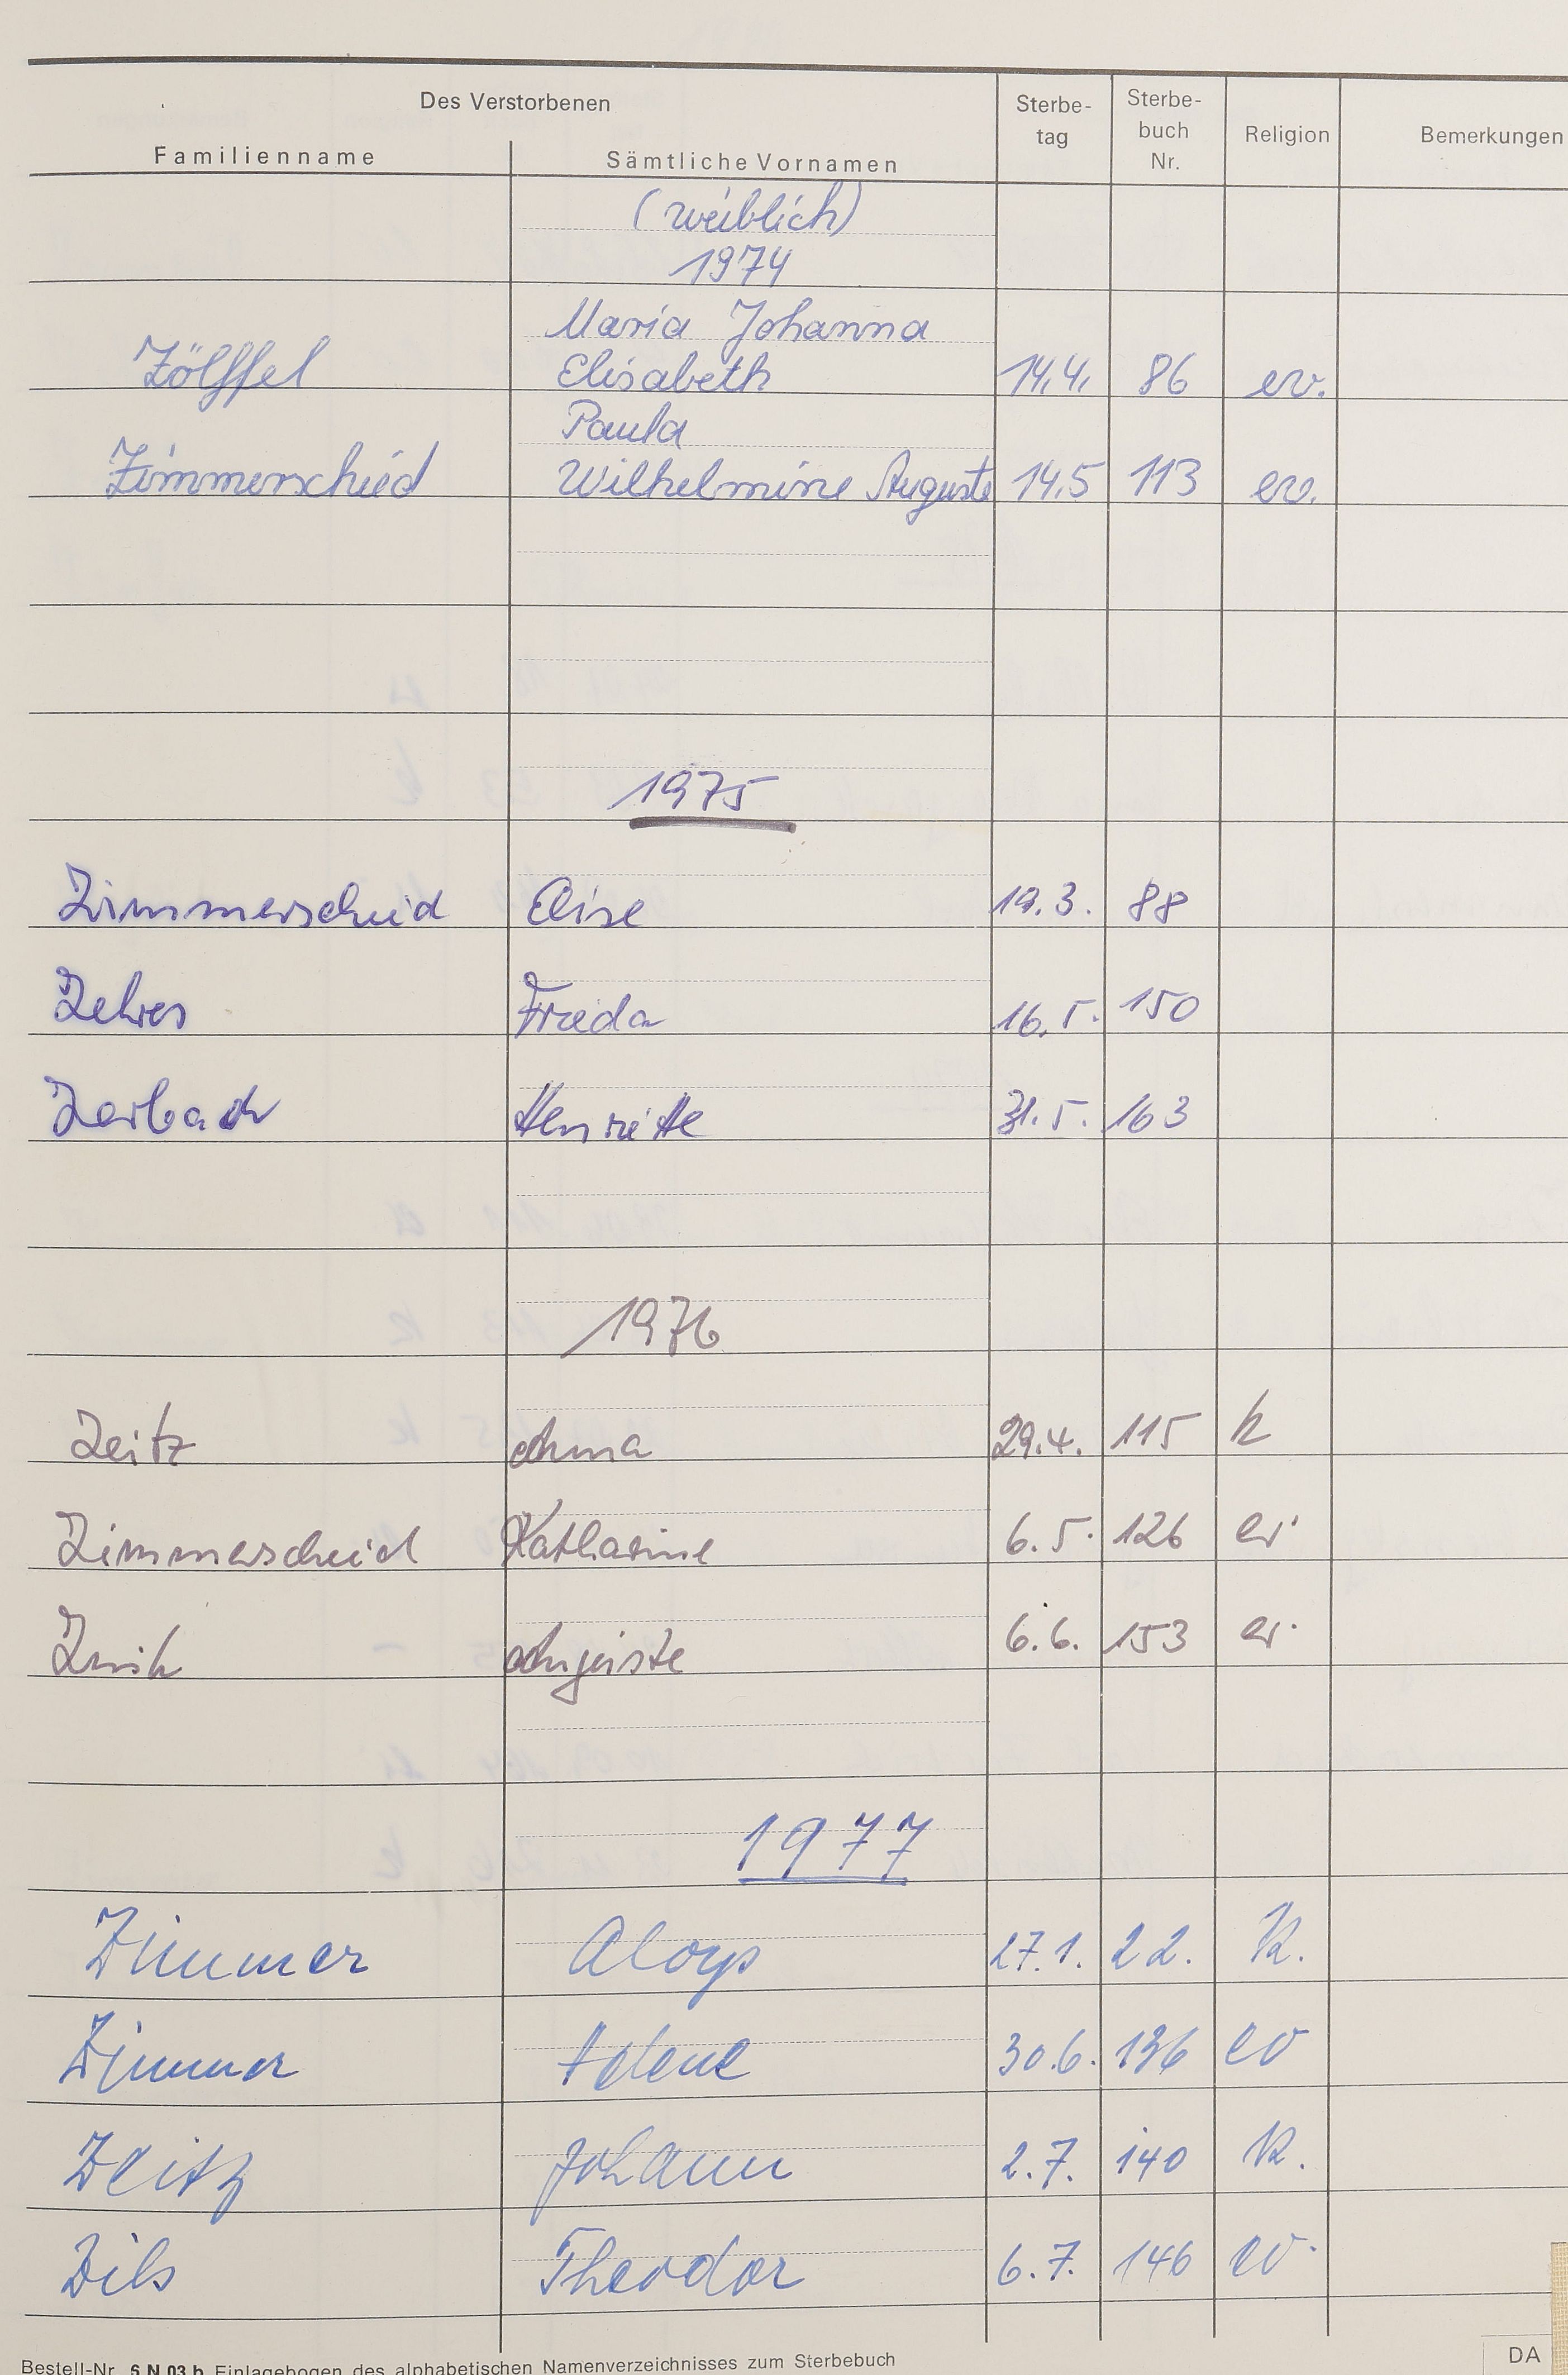 Des Verstorbenen
Familienname Sämtliche Vornamen Sterbe-tag Sterbe-buch Nr. Religion Bemerkungen
(weiblich)
1974
Maria Johanna
Zölffel Elisabeth 14.4. 86 ev.
Paula
Zimmerscheid Wilhelmine Auguste 14.5 113 ev.
1975
Zimmerscheid Elise 19.3. 88
Zehres Frieda 16.5. 150
Zerbach Henriette 31.5. 163
1976
Zeitz Anna 29.4. 115 k
Zimmerscheid Katharine 6.5. 126 ev.
Auguste 6.6. 153 ev.
1977
Zimmer Aloys 27.1. 22. K.
Zimmer Helene 30.6. 136 ev
Zeitz Johann 2.7. 140 K.
Zils Theodor 6.7. 146 ev.
Bestell-Nr. 6 N 03 b Einlagebogen des alphabetischen Namenverzeichnisses zum Sterbebuch
DA